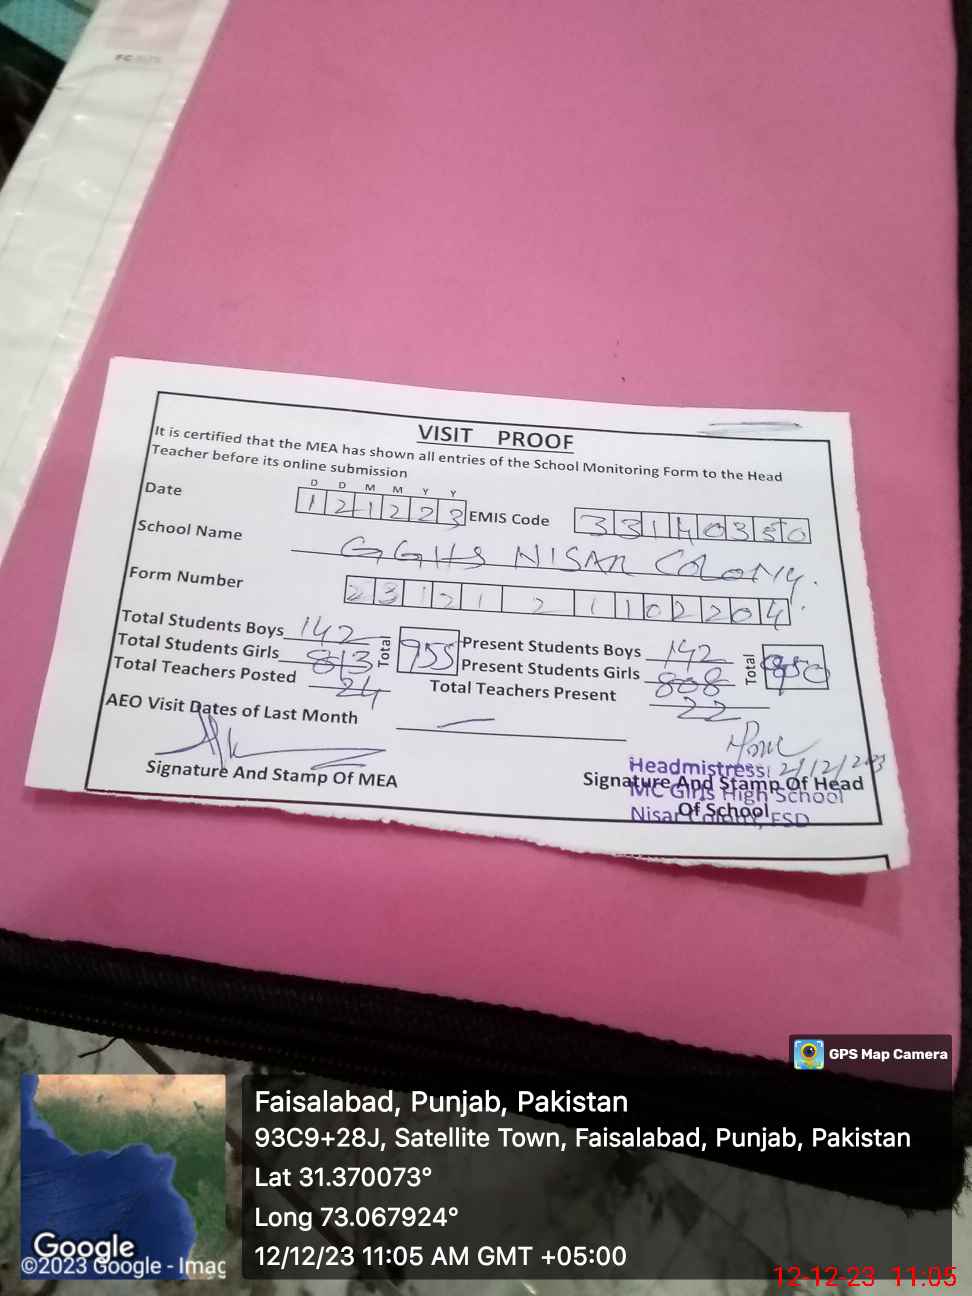 VISIT PROOF
It is certified that the MEA has shown all entries of the School Monitoring Form to the Head
Teacher before its online submission
D D M M Y Y
Date 121223 EMIS Code 33140350
School Name GGHS NISAR COLONY.
Form Number 2312121102204
Total Students Boys 142 Total 955 Present Students Boys 142 Total 950
Total Students Girls 813 Present Students Girls 808
Total Teachers Posted 24 Total Teachers Present 22
AEO Visit Dates of Last Month —
Signature And Stamp Of MEA
Signature And Stamp Of Head
Of School
Headmistress
MC Girls High School
Nisar Colony, FSD
GPS Map Camera
Faisalabad, Punjab, Pakistan
93C9+28J, Satellite Town, Faisalabad, Punjab, Pakistan
Lat 31.370073°
Long 73.067924°
12/12/23 11:05 AM GMT +05:00
Google
©2023 Google - Imag
12-12-23 11:05